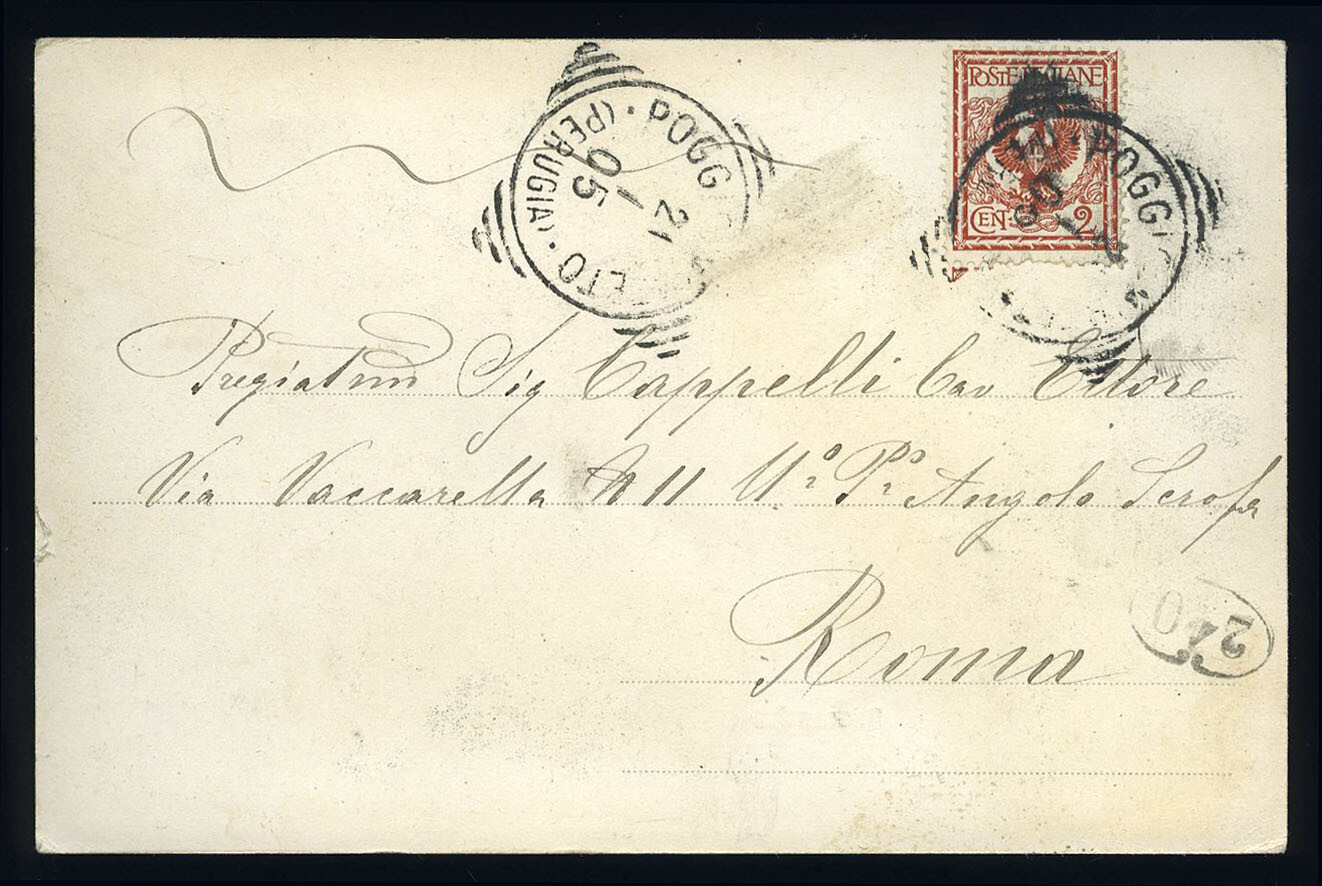 POSTE ITALIANE
CEN. 2
POGGIO
(PERUGIA)
21
1
05
POGGIO
Pregiatmo Sig Cappelli Cav Ettore
Via Vaccarella N 11 Uo Po Angolo Scrofa
Roma
2